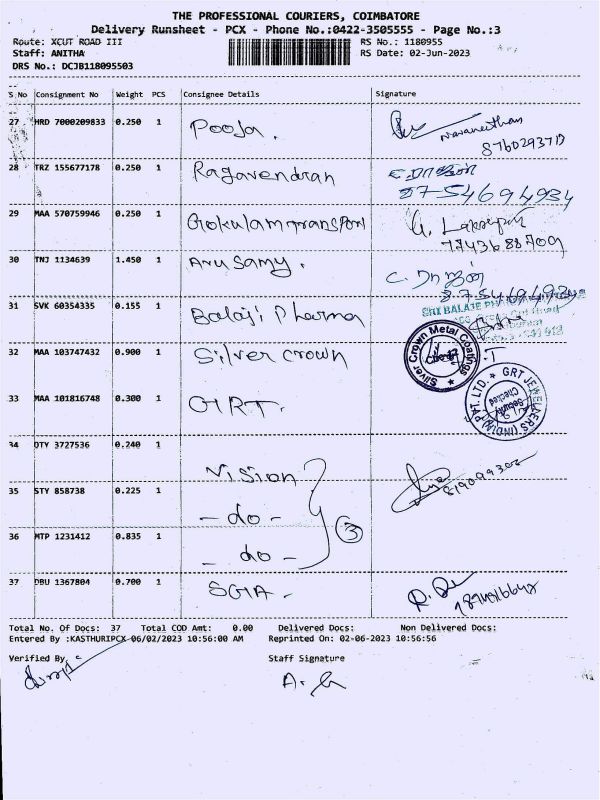 THE PROFESSIONAL COURIERS, COIMBATORE
Delivery Runsheet - PCX - Phone No.:0422-3505555 - Page No.:3
Route: XCUT ROAD III RS No.: 1180955
Staff: ANITHA RS Date: 02-Jun-2023
DRS No.: DCJB118095503
S No Consignment No Weight PCS Consignee Details Signature
27 HRD 7000209833 0.250 1 Pooja. Navaneethan
8760293719
28 TRZ 155677178 0.250 1 Ragavendran
8754694934
29 MAA 570759946 0.250 1 Gokulam transport
30 TNJ 1134639 1.450 1 Arusamy.
C. ராஜன்
8754694934
31 SVK 60354335 0.155 1 Balaji Pharma SRI BALAJE
32 MAA 103747432 0.900 1 Silver crown Silver Crown Metal Coatings
33 MAA 101816748 0.300 1 GRT. GRT JEWELLERS (INDIA) PVT. LTD.
Security
Checked
34 OTY 3727536 0.240 1 Vision
35 STY 858738 0.225 1 - do -
36 MTP 1231412 0.835 1 - do - 3
37 DBU 1367804 0.700 1 SGA.
Total No. Of Docs: 37 Total COD Amt: 0.00 Delivered Docs: Non Delivered Docs:
Entered By :KASTHURIPCX 06/02/2023 10:56:00 AM Reprinted On: 02-06-2023 10:56:56
Verified By Staff Signature